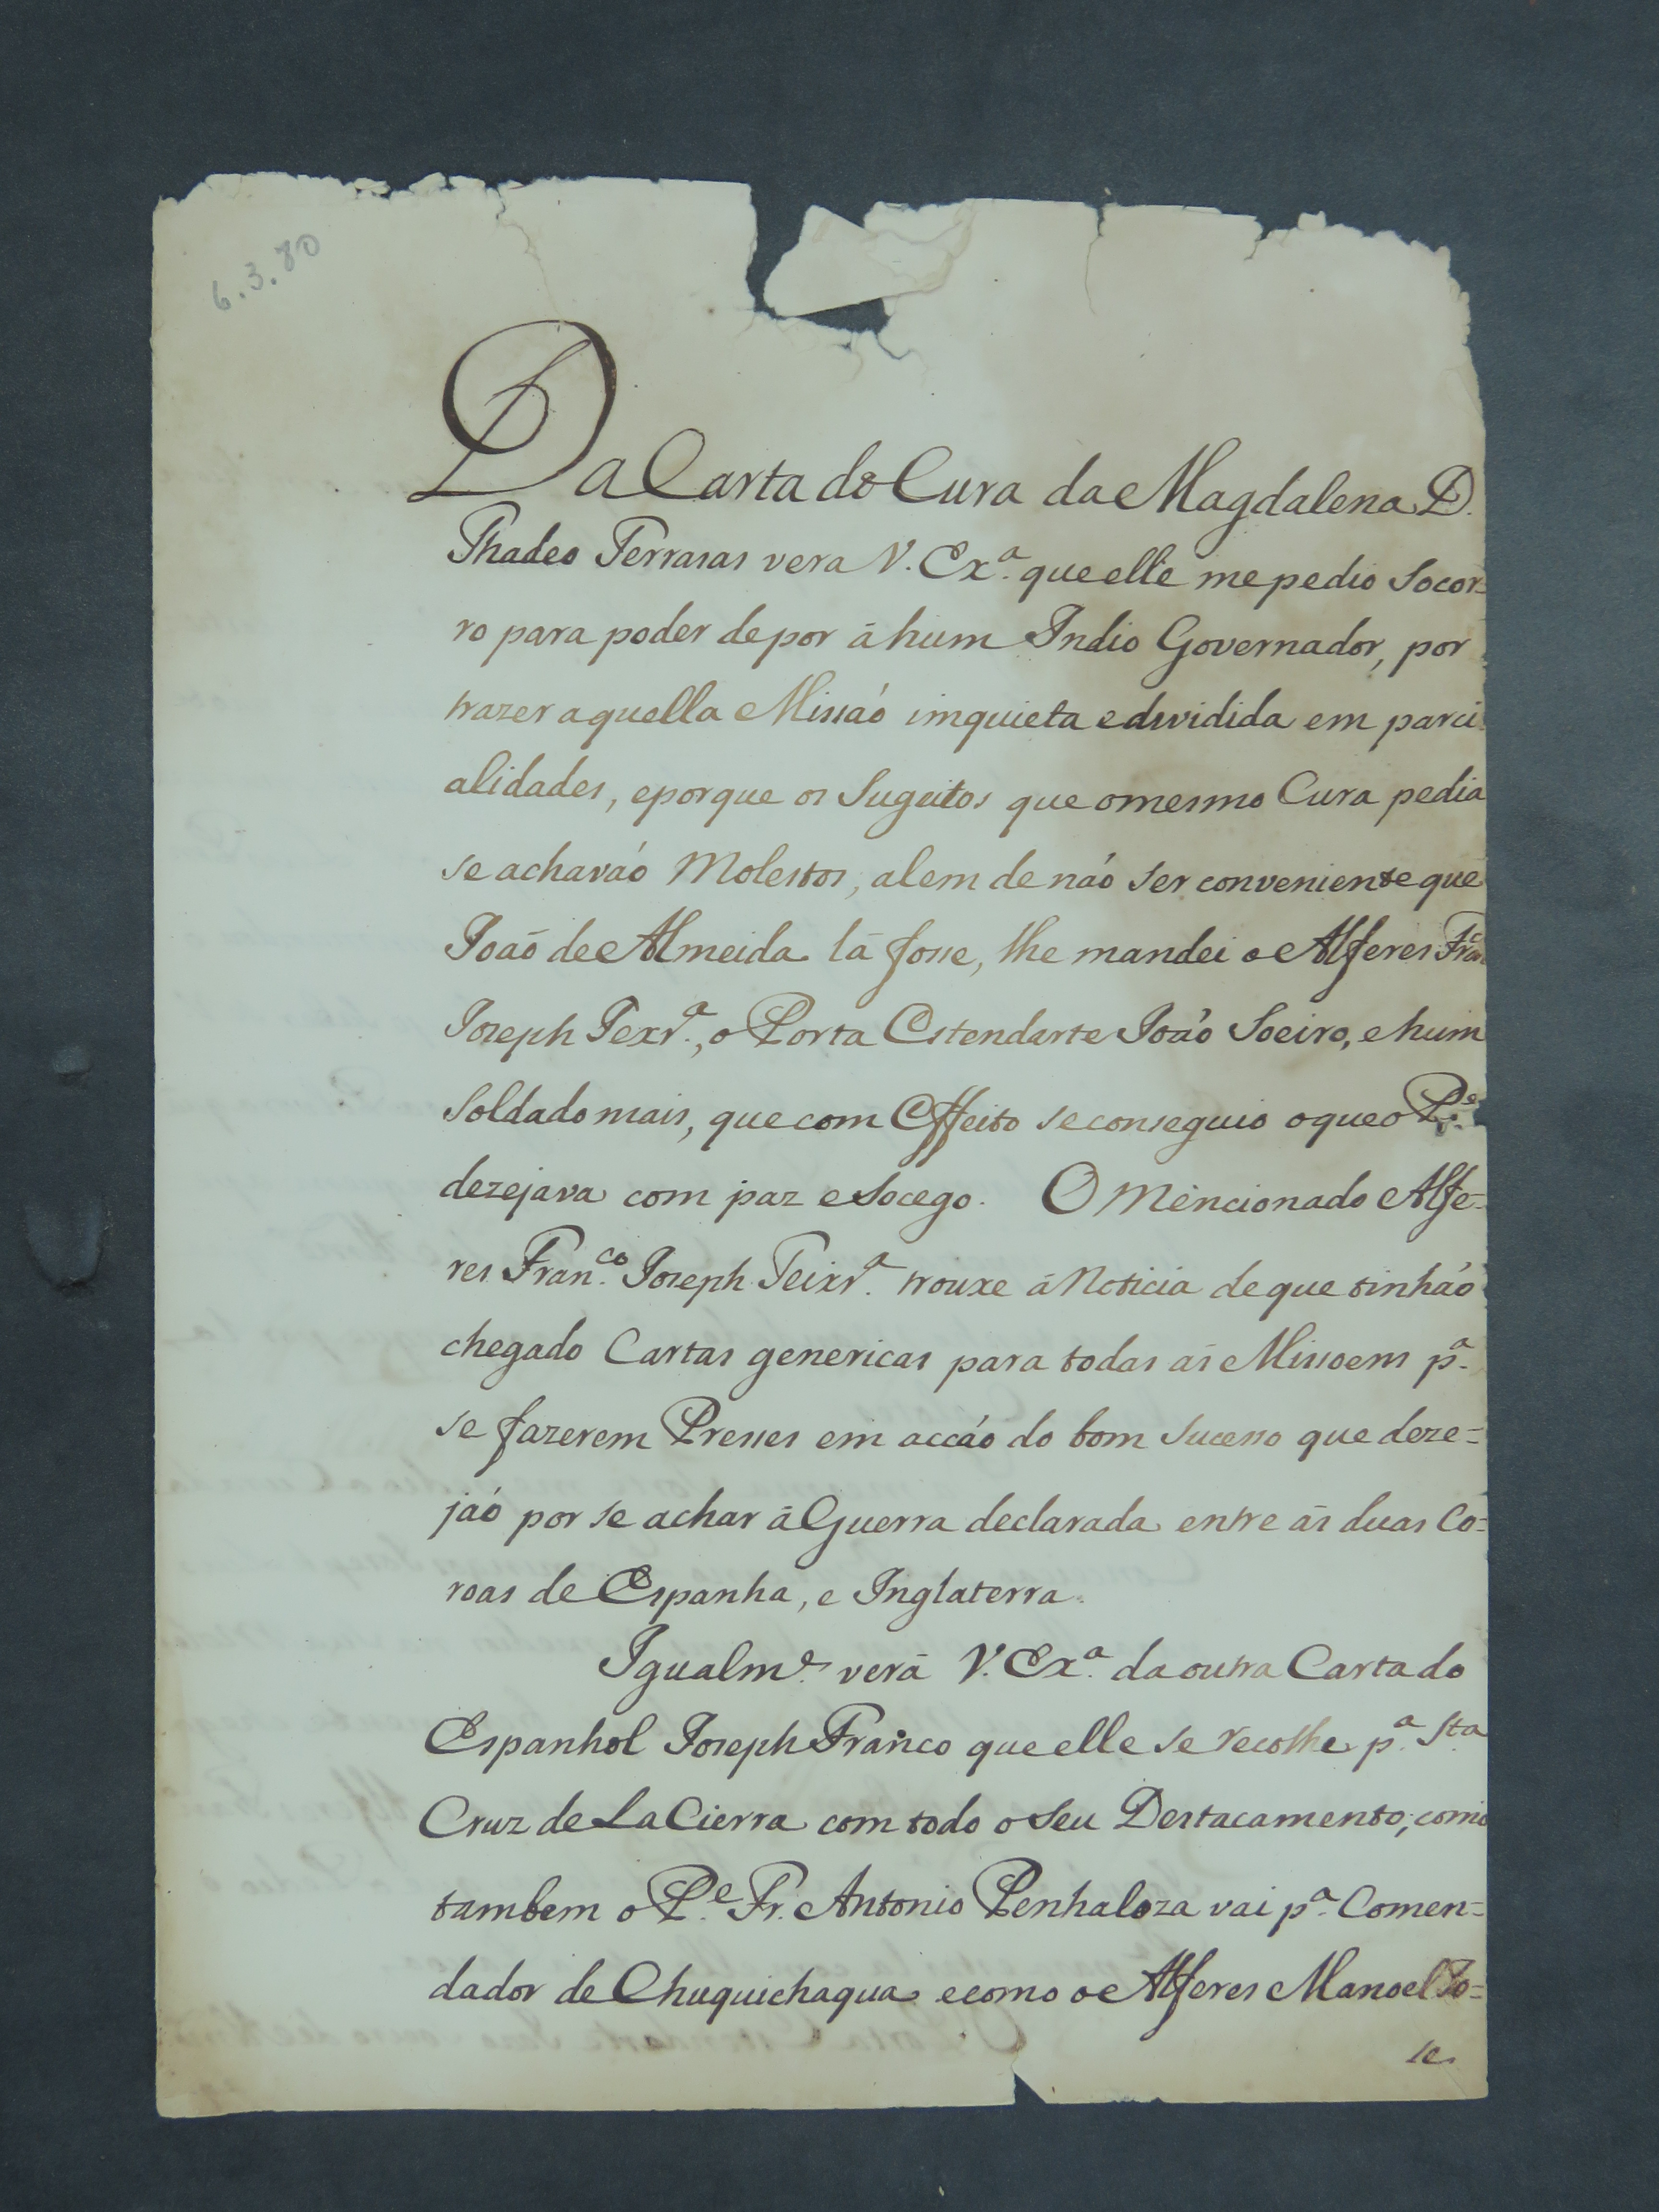 6.3.80
Da Carta do Cura da Magdalena D.
Thadeo Terrasas vera V. Exª. que elle me pedio Socor=
ro para poder depor á hum Indio Governador, por
trazer aquella Missaó imquieta e dividida em parci=
alidades, e porque os Sugeitos que o mesmo Cura pedia
se achavaó Molestos, alem de naó ser conveniente que
Joaó de Almeida lá fosse, lhe mandei o Alferes Fran.co
Joseph Texrª., o Porta Estendarte Joaó Soeiro, e hum
Soldado mais, que com Effeito se conseguio o que o P.e
dezejava com paz e Socego. O Mencionado Alfe=
res Fran.co Joseph Teixrª. trouxe á Noticia de que tinhaó
chegado Cartas genericas para todas ás Missoens pª.
se fazerem Presses em accaó do bom Sucesso que deze=
jaó por se achar á Guerra declarada entre ás duas Co=
roas de Espanha, e Inglaterra.
Igualm.e verá V. Exª. da outra Carta do
Espanhol Joseph Franco que elle se recolhe pª. Sta
Cruz de La Cierra com todo o Seu Destacamento; como
tambem o P.e Fr. Antonio Penhaloza vai pª. Comen=
dador de Chuquichaqua e como o Alferes Manoel Jo=
se